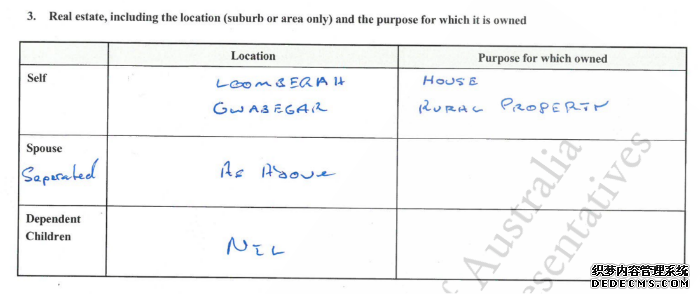 3. Real estate, including the location (suburb or area only) and the purpose for which it is owned
Location Purpose for which owned
Self LOOMBERAH HOUSE
GWABEGAR RURAL PROPERTY
Spouse
Seperated As Above
Dependent
Children
NIL
Australia
esentatives
织梦内容管理系统
DEDECMS.COM